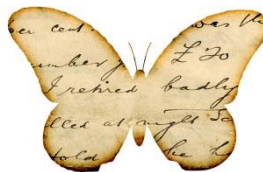 er cent was th
umber £ 20
I retired badly
lled at night So
told he h